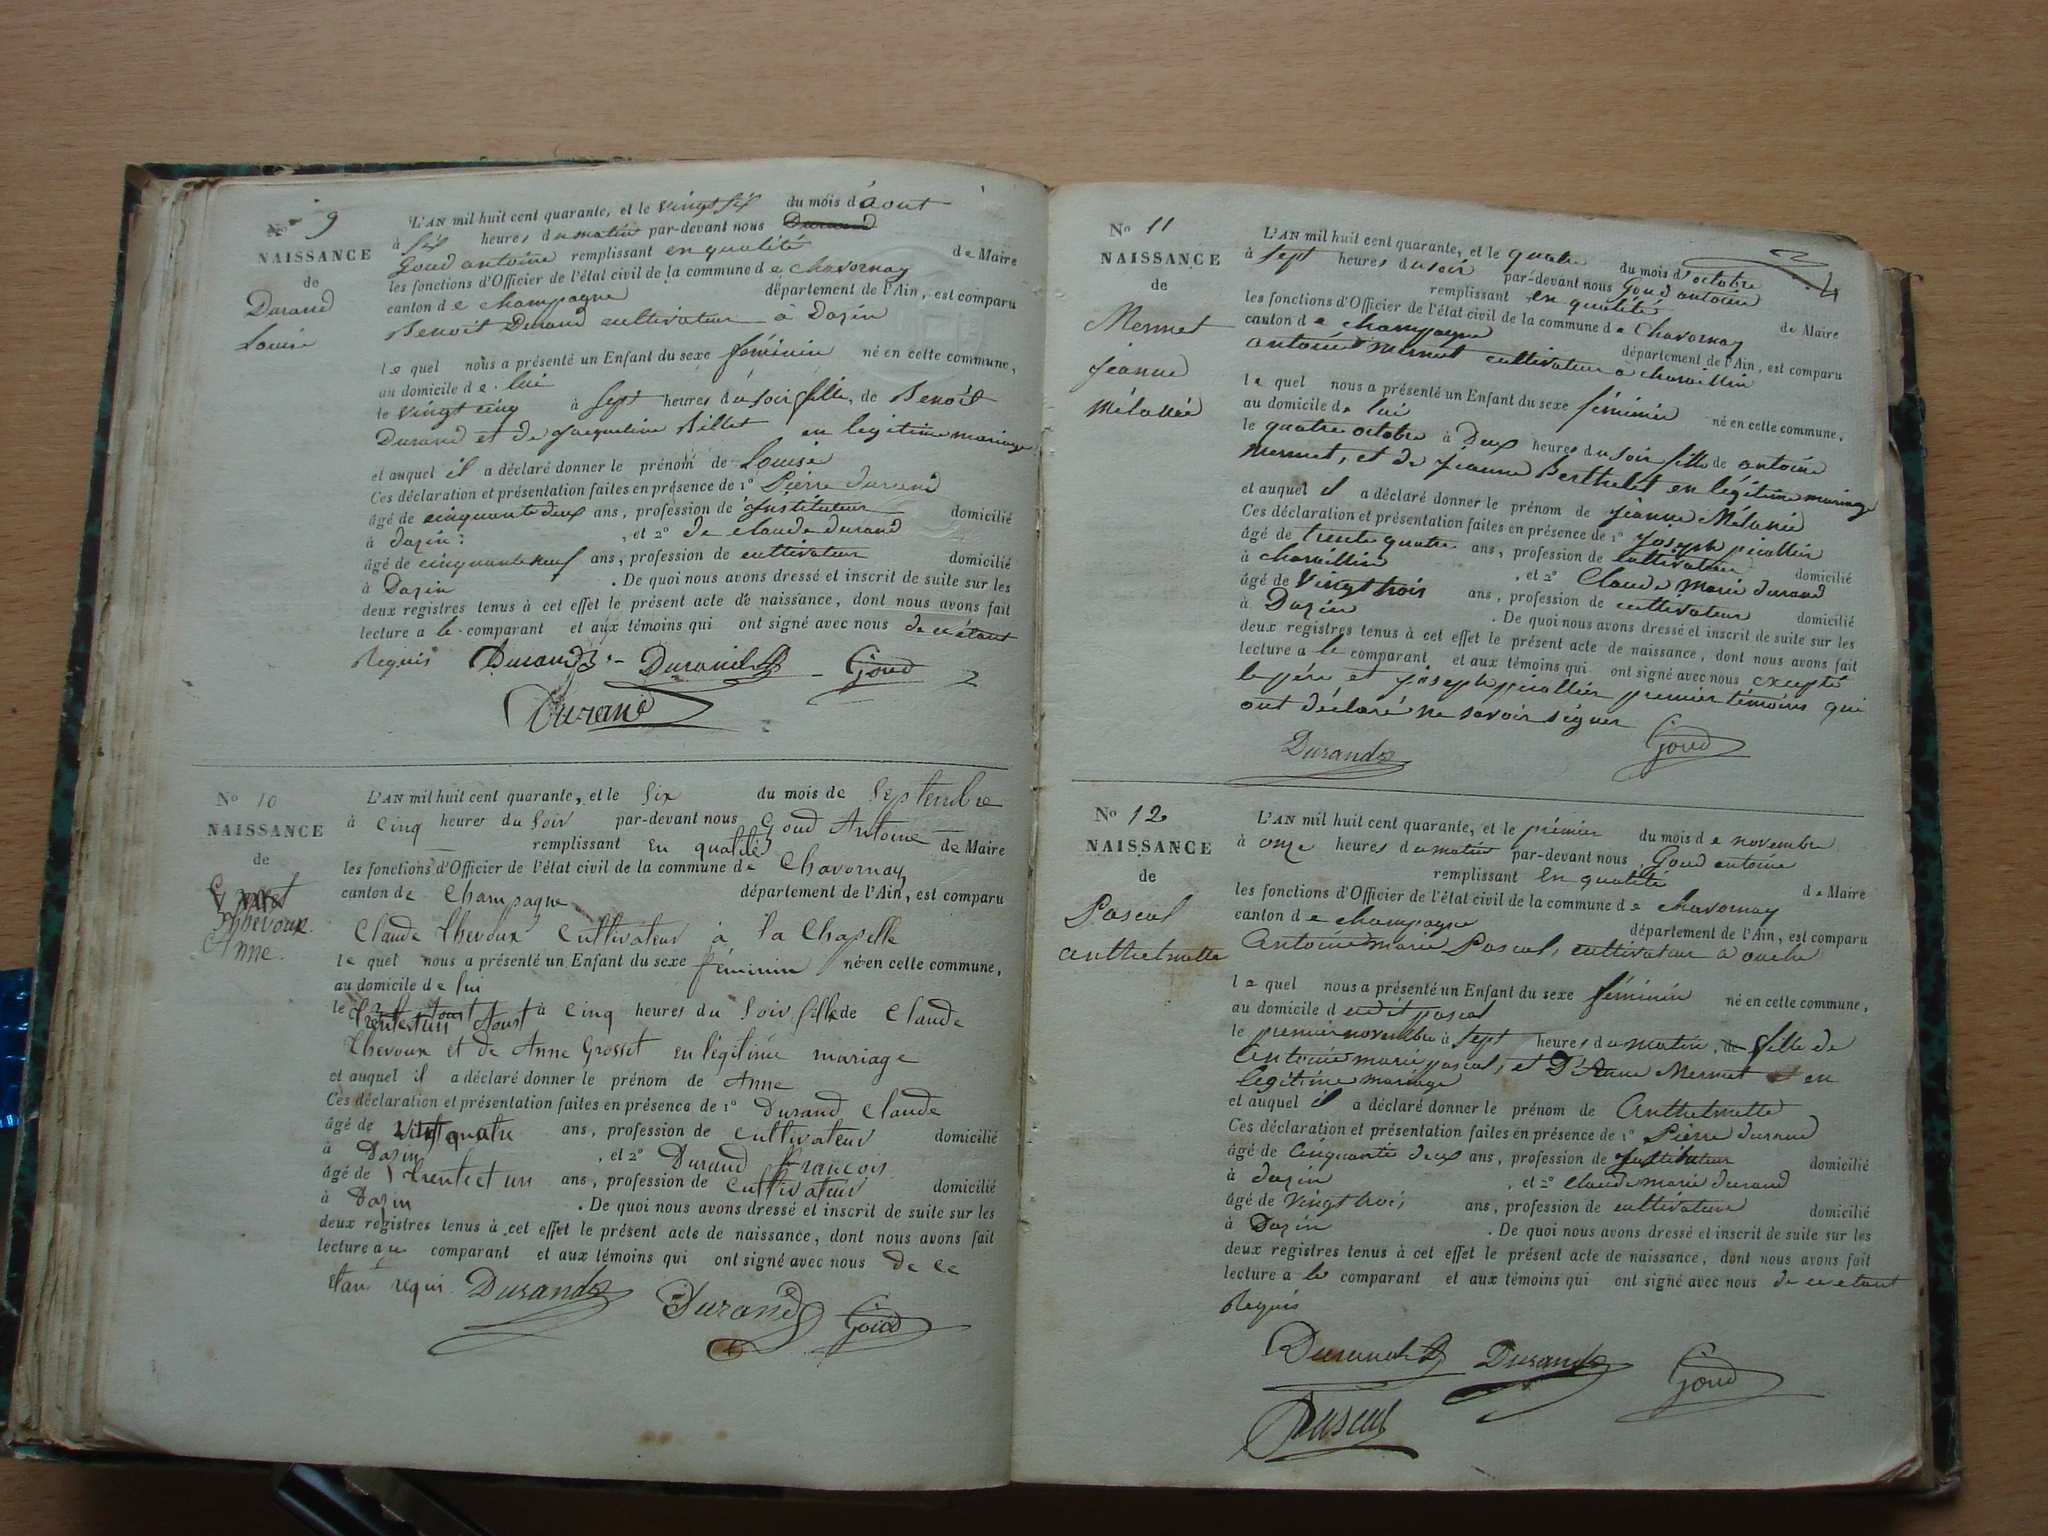 No 9
NAISSANCE
de
Durand
Louise
L'AN mil huit cent quarante, et le vingt six du mois d'aout
à six heures du matin par-devant nous Durand
Goud antoine remplissant en qualité de Maire
les fonctions d'Officier de l'état civil de la commune de chavornay
canton de champagne département de l'Ain, est comparu
Benoit Durand cultivateur à Dazin
lequel nous a présenté un Enfant du sexe féminin né en cette commune,
au domicile de lui
le vingt cinq à sept heures du soir fille, de Benoit
Durand et de Jacqueline Billet en legitime mariage
et auquel il a déclaré donner le prénom de Louise
Ces déclaration et présentation faites en présence de 1º Pierre durand
âgé de cinquante deux ans, profession de instituteur domicilié
à dazin: , et 2º de claude durand
âgé de cinquante neuf ans, profession de cultivateur domicilié
à Dazin . De quoi nous avons dressé et inscrit de suite sur les
deux registres tenus à cet effet le présent acte de naissance, dont nous avons fait
lecture a le comparant et aux témoins qui ont signé avec nous de ce étant
Requis Durand Durand Goud
Durand
No 10
NAISSANCE
de
Thevoux
Anne.
L'AN mil huit cent quarante, et le Six du mois de Septembre
à Cinq heures du Soir par-devant nous Goud Antoine
remplissant En qualité de Maire
les fonctions d'Officier de l'état civil de la commune de Chavornay
canton de Champagne département de l'Ain, est comparu
Claude Thevoux Cultivateur à la Chapelle
lequel nous a présenté un Enfant du sexe féminin né en cette commune,
au domicile de lui
le trente et un Aoust à Cinq heures du Soir fille de Claude
Thevoux et de Anne Grosset en légitime mariage
et auquel il a déclaré donner le prénom de Anne
Ces déclaration et présentation faites en présence de 1º Durand Claude
âgé de vint quatre ans, profession de cultivateur domicilié
à Dazin , et 2º Durand françois
âgé de trente et un ans, profession de cultivateur domicilié
à Dazin . De quoi nous avons dressé et inscrit de suite sur les
deux registres tenus à cet effet le présent acte de naissance, dont nous avons fait
lecture au comparant et aux témoins qui ont signé avec nous de ce
etan requi Durand Durand Goud
No 11
NAISSANCE
de
Mermet
jeanne
Mélanie
L'AN mil huit cent quarante, et le quatre du mois d'octobre
à sept heures du soir par-devant nous Goud antoine
remplissant en qualité de Maire
les fonctions d'Officier de l'état civil de la commune de Chavornay
canton de champagne département de l'Ain, est comparu
antoine mermet cultivateur a charaillin
lequel nous a présenté un Enfant du sexe féminin né en cette commune,
au domicile de lui
le quatre octobre à Deux heures du soir fille de antoine
mermet, et de jeanne Berthelet en légitime mariage
et auquel il a déclaré donner le prénom de jeanne Mélanie
Ces déclaration et présentation faites en présence de 1º joseph picollin
âgé de trente quatre ans, profession de cultivateur domicilié
à charaillin , et 2º Claude marie durand
âgé de vingt trois ans, profession de cultivateur domicilié
à Dazin . De quoi nous avons dressé et inscrit de suite sur les
deux registres tenus à cet effet le présent acte de naissance, dont nous avons fait
lecture a le comparant et aux témoins qui ont signé avec nous excepté
le père et joseph picollin premier témoins qui
ont déclaré ne savoir signer
Durand Goud
No 12
NAISSANCE
de
Pascal
anthelmette
L'AN mil huit cent quarante, et le prémier du mois de novembre
à onze heures du matin par-devant nous Goud antoine
remplissant En qualité de Maire
les fonctions d'Officier de l'état civil de la commune de chavornay
canton de champagne département de l'Ain, est comparu
Antoine marie Pascal, cultivateur à ouche
lequel nous a présenté un Enfant du sexe féminin né en cette commune,
au domicile dudit pascal
le premier novembre à sept heures du matin, de fille de
Antoine marie pascal, et D'Anne Mermet en
legitime mariage
et auquel il a déclaré donner le prénom de Anthelmette
Ces déclaration et présentation faites en présence de 1º Pierre durand
âgé de Cinquante deux ans, profession de instituteur domicilié
à dazin , et 2º claude marie durand
âgé de vingt trois ans, profession de cultivateur domicilié
à Dazin . De quoi nous avons dressé et inscrit de suite sur les
deux registres tenus à cet effet le présent acte de naissance, dont nous avons fait
lecture a le comparant et aux témoins qui ont signé avec nous de ce etant
Requis
Durand Durand Goud
Pascal